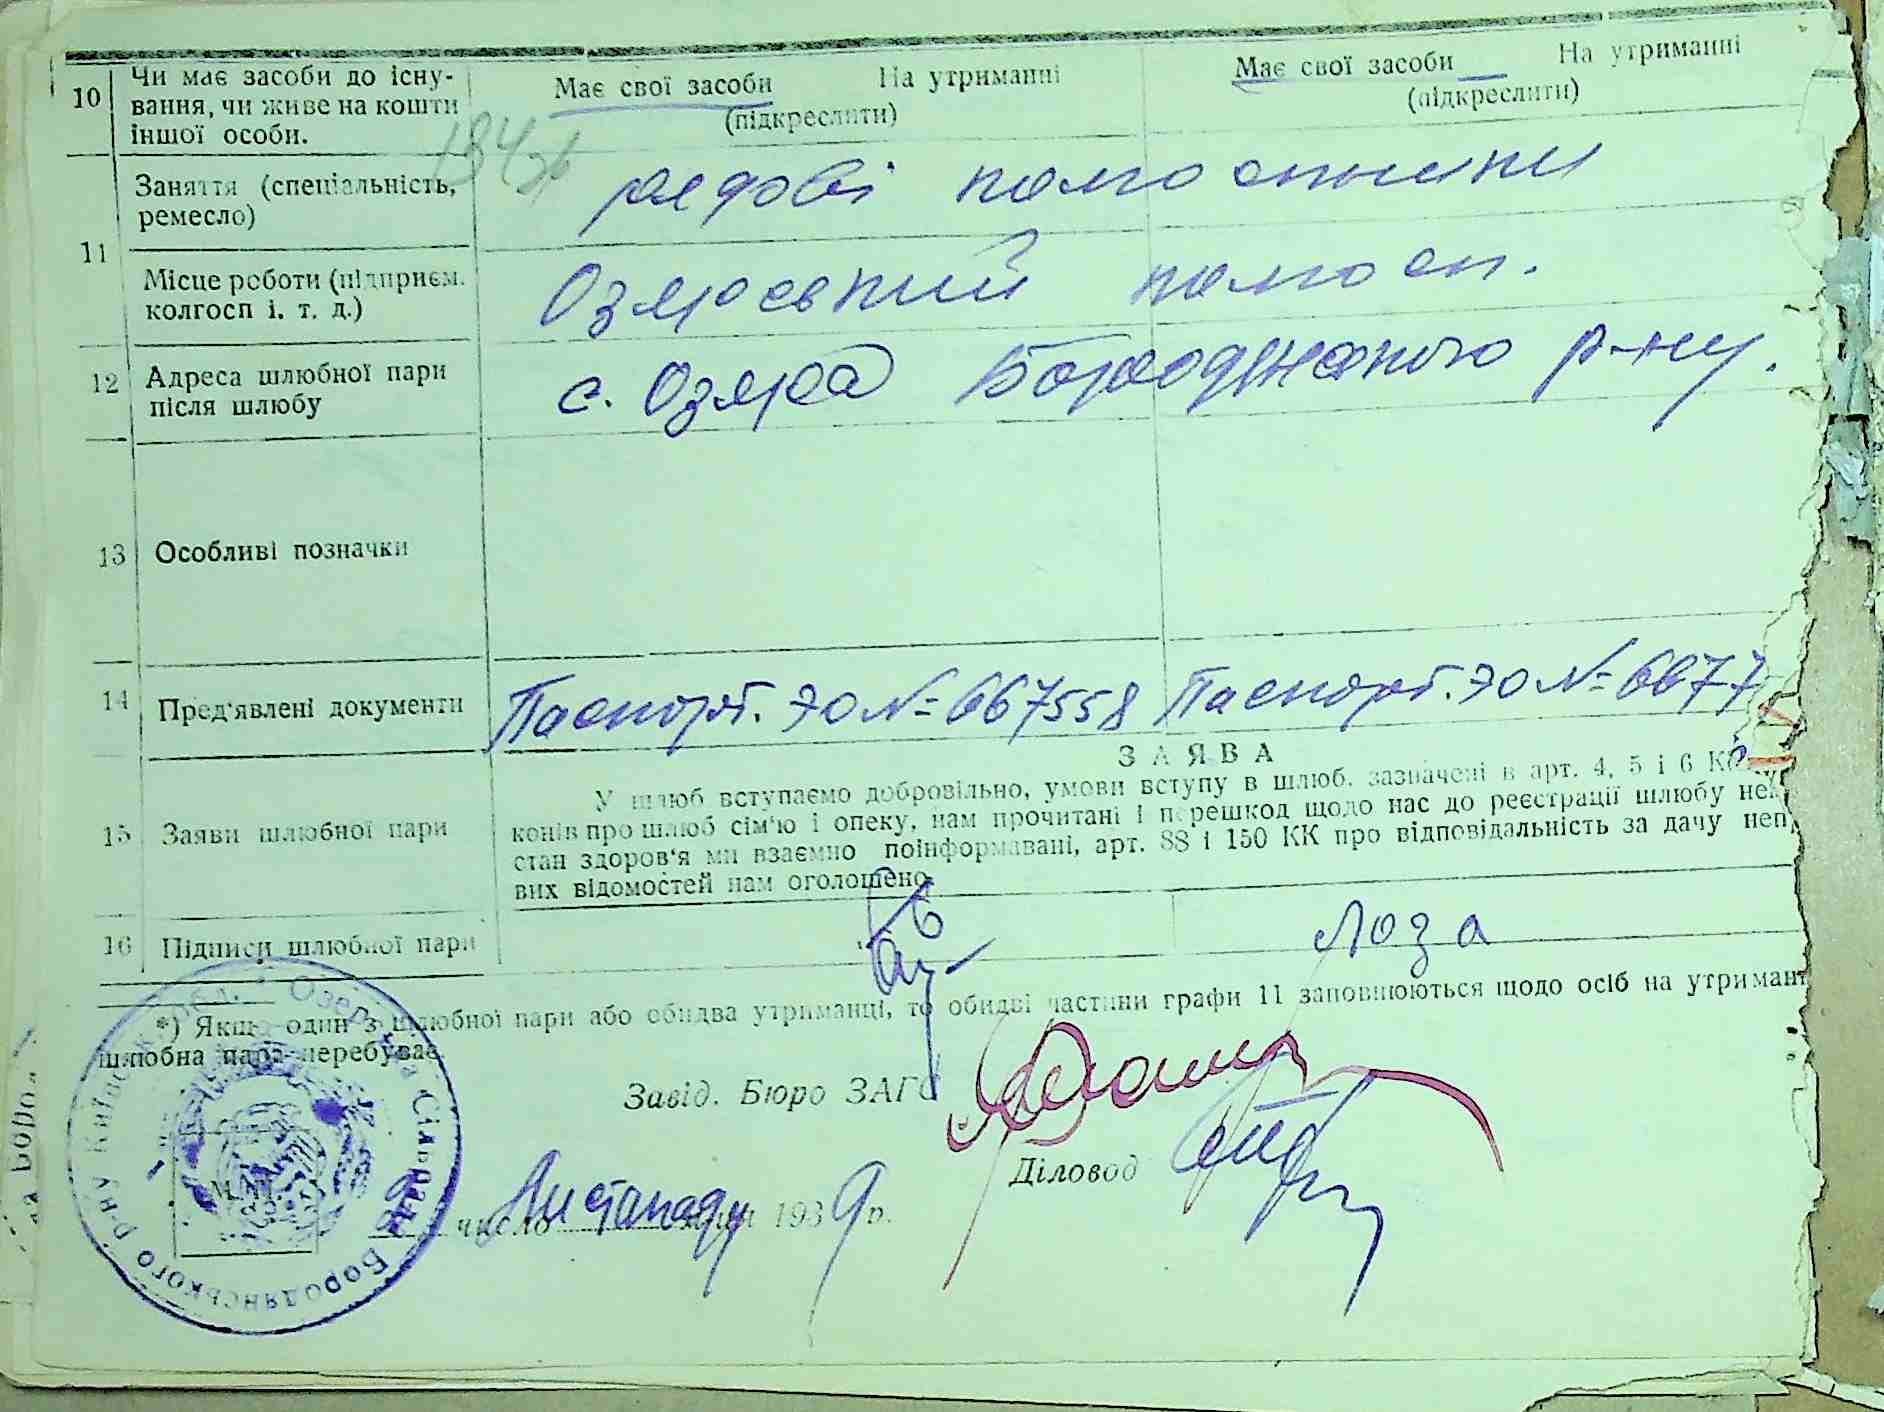 10 Чи має засоби до існу- Має свої засоби На утриманні Має свої засоби На утриманні
вання, чи живе на кошти (підкреслити) (підкреслити)
іншої особи.
184зв
11 Заняття (спеціальність, рядові колгоспники
ремесло)
Місце роботи (підприєм. Озерський колгосп.
колгосп і. т. д.)
12 Адреса шлюбної пари с. Озера Бородянського р-ну.
після шлюбу
13 Особливі позначки
14 Пред'явлені документи Паспорт. ЭО № 667558 Паспорт. ЭО № 6677
ЗАЯВА
15 Заяви шлюбної пари
У шлюб вступаємо добровільно, умови вступу в шлюб. зазначені в арт. 4, 5 і 6 К
конів про шлюб сім'ю і опеку, нам прочитані і перешкод щодо нас до реєстрації шлюбу нем
стан здоров'я ми взаємно поінформавані, арт. 88 і 150 КК про відповідальність за дачу неп
вих відомостей нам оголошено.
16 Підписи шлюбної пари Лоза
*) Якщо один з шлюбної пари або обидва утриманці, то обидві частини графи 11 заповнюються щодо осіб на утриман
шлюбна пара перебуває.
Завід. Бюро ЗАГС
Діловод
число Листопаду 1939 р.
М. П.
Озерська Сільрада Бородянського р-ну Київськ. обл.